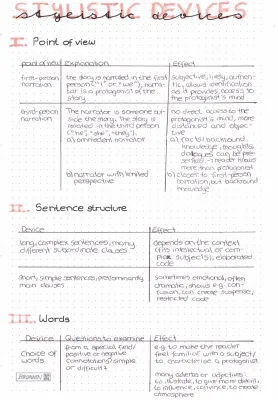 STYLISTIC DEVICES
stylistic devices
I. Point of view
point of view Explanation Effect
first-person the story is narrated in the first Subjective, lively, authen-
narration person ("I" or "we"), narra- tic, allows identification
tor is a protagonist of the as it provides access to
story the protagonist's mind
third-person The narrator is someone out- no direct access to the
narration side the story. The story is protagonist's mind, more
narrated in the third person distanced and objec-
("he", "she", "they"). tive
a) omniscient narrator a) (factual) background
knowledge, thoughts
dialogues can be pre-
sented - reader knows
more than protagonist
b) narrator with limited b) closer to first-person
perspective narration, but background
knowledge
II. Sentence structure
Device Effect
long, complex sentences, many depends on the context
different subordinate clauses (f.ex. intellectual or com-
plex subjects); elaborated
code
short, simple sentences, predominantly Sometimes emotional, often
main clauses dramatic, shows e.g. con-
fusion, can create suspense;
restricted code
III. Words
Device Questions to examine Effect
Choice of from a special field? e.g. to make the reader
words positive or negative feel familiar with a subject/
connotations? simple to characterise a protagonist
or difficult?
many adverbs or adjectives:
to illustrate, to give more detail,
to influence, convince, to create
atmosphere